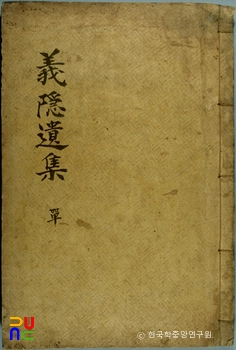 義隱遺集
單
© 한국학중앙연구원